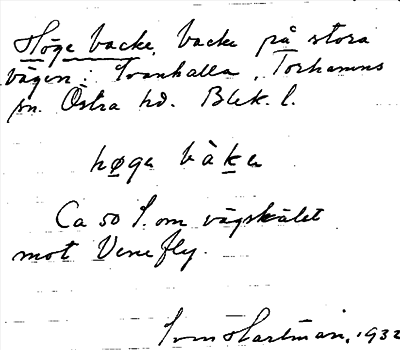 Höge backe, backe på stora
vägen i Svanhalla, Torhamns
sn. Östra hd. Blek. l.
høga bàkɐ
Ca 50 S. om vägskälet
mot Vene fly.
Sven Hartman, 1932